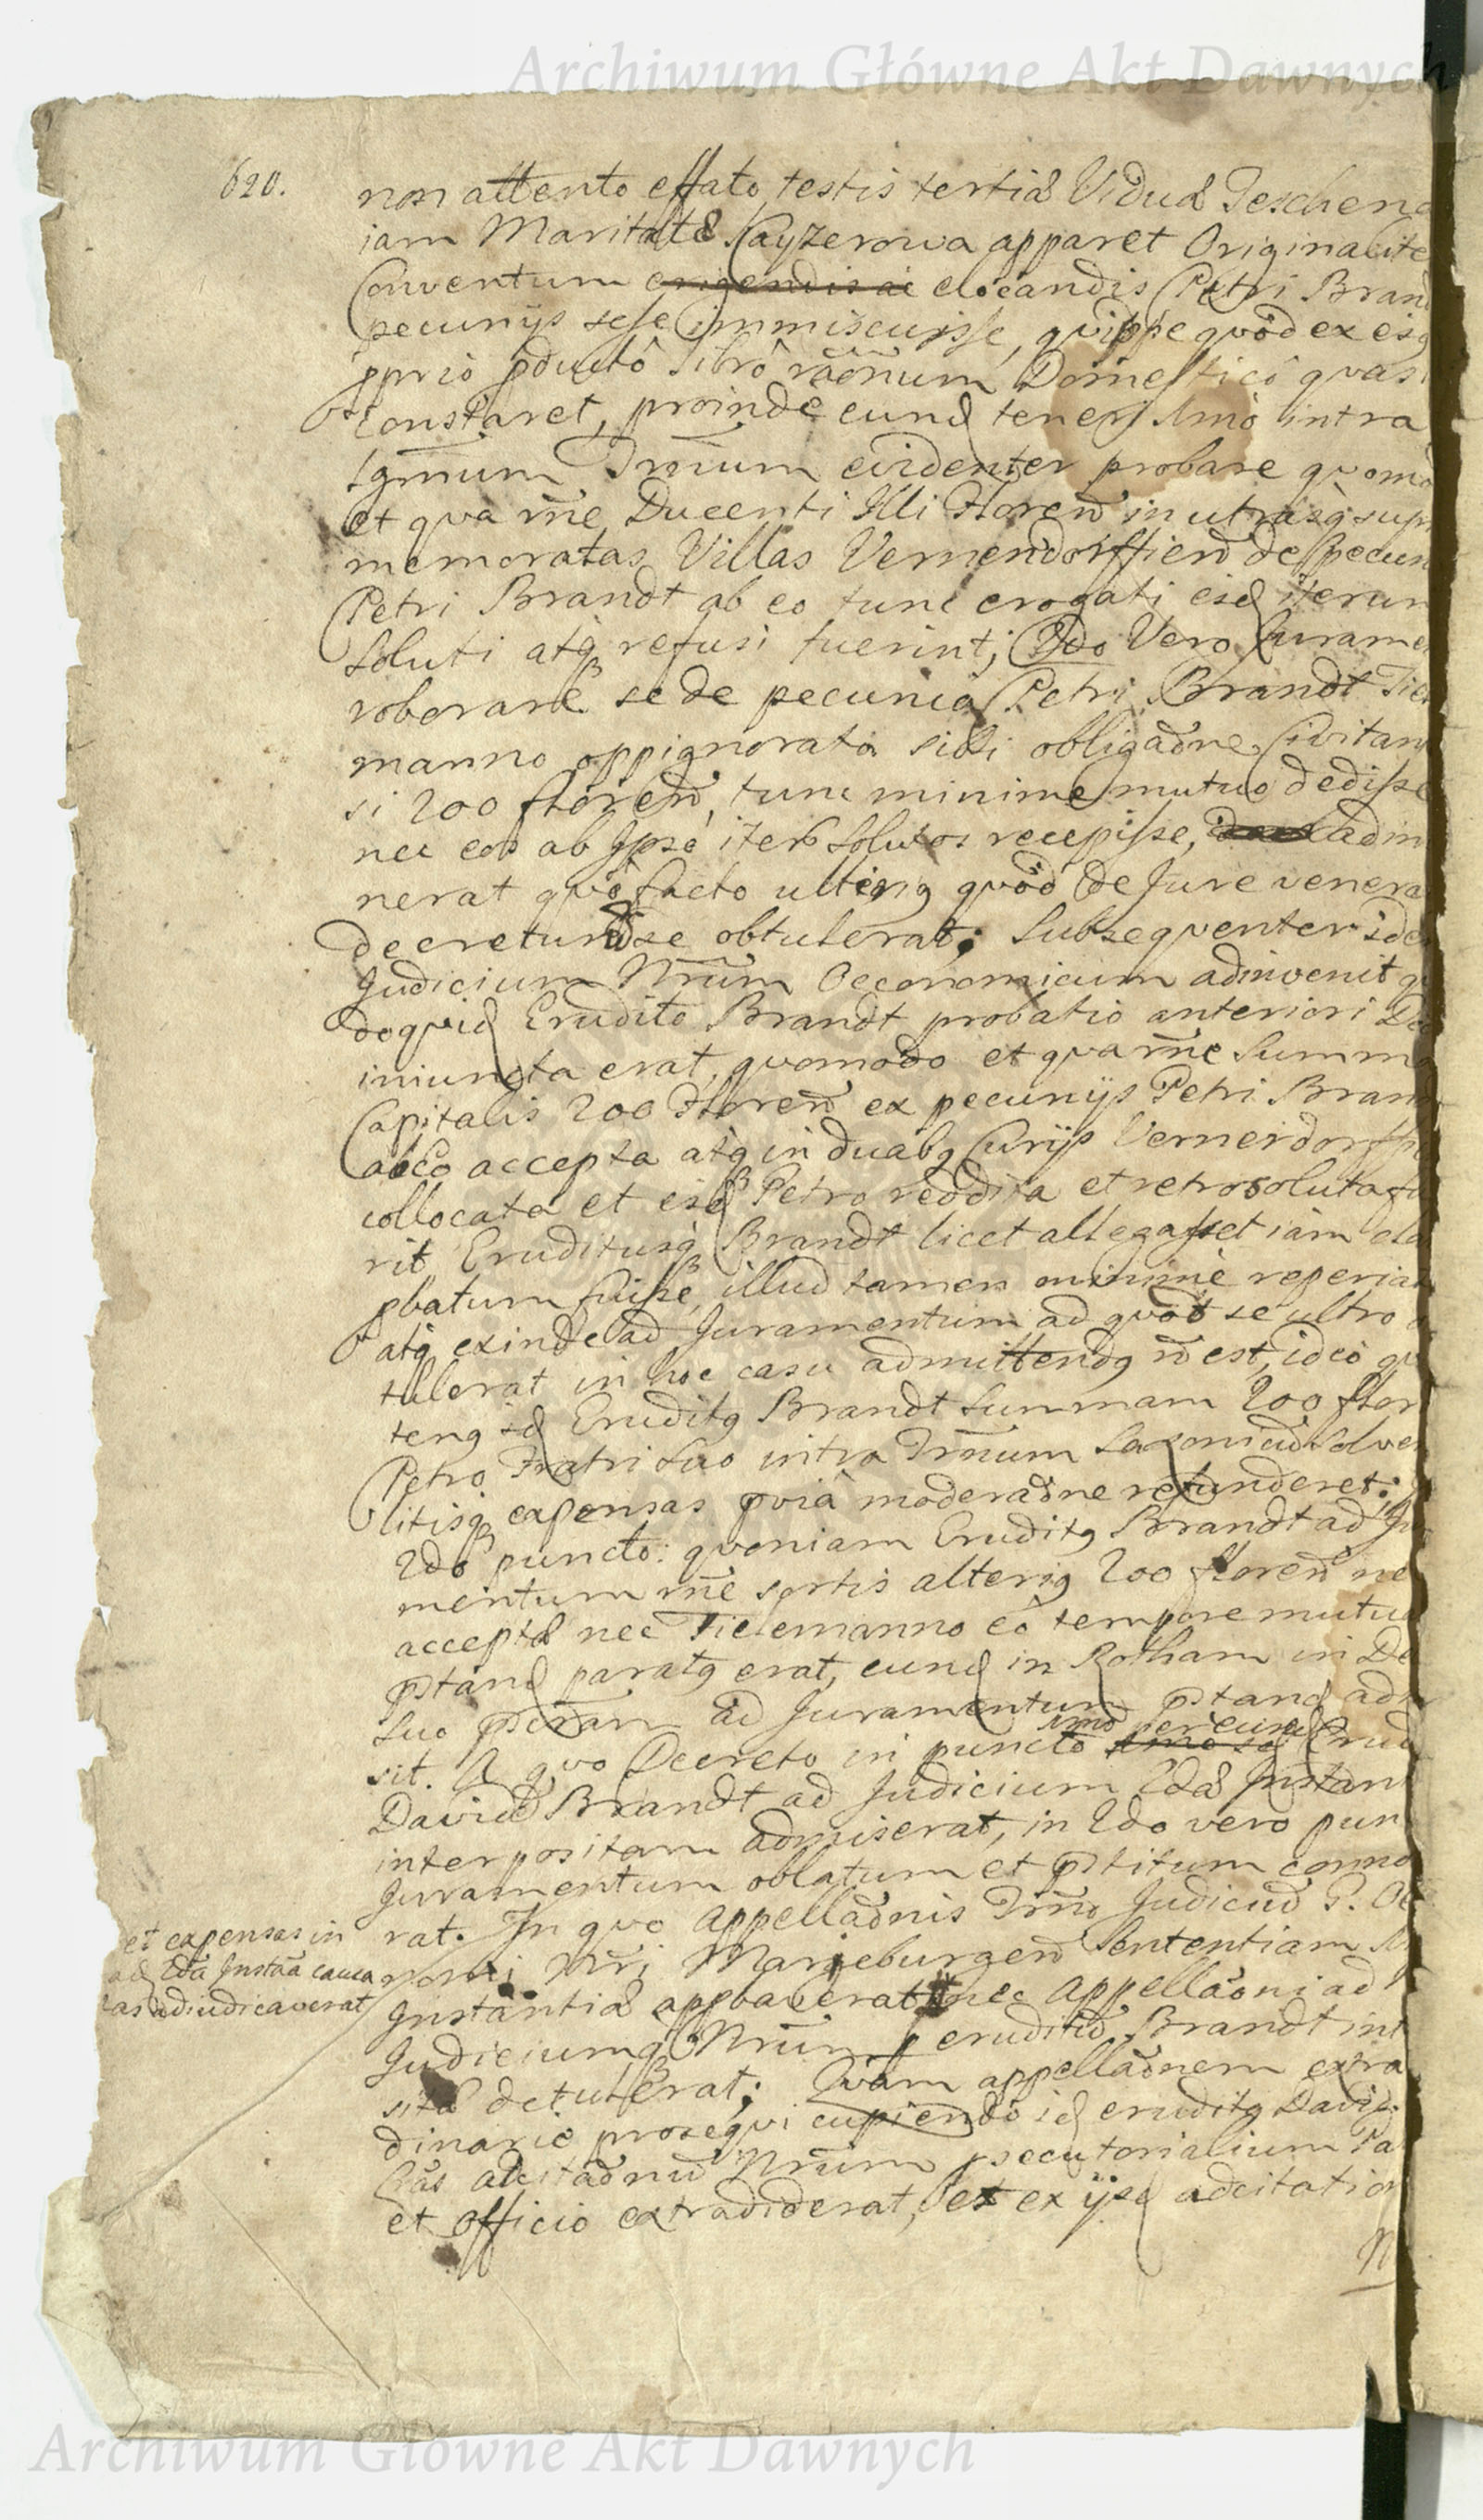 Archiwum Główne Akt Dawnych
620.
non attento effato testis tertiæ Viduæ Teschen
iam Maritatæ Kayzerowa apparet Originalite
Conventum erigendis ac elocandis Petri Brand
pecunijs sese immiscuisse, quippe quòd ex eisq
pprio pductô Librô raõnum Domesticô quasi
constaret, proinde eund teneri 1mò intra
Ignium Trium evidenter probare quomo
et qua rñe Ducenti Illi Floreñ in utrasq supr
memoratas Villas Vernersdorffieñ de pecun
Petri Brandt ab eo tunc erogati eisd iterum
soluti atq refusi fuerint; 2do Vero Jurame
roborare se de pecunia Petri Brandt Tiel
manno oppignorata sibi obligaõne Civitan
si 200 floreñ, tunc minime mutuo dedisse
nec eos ab Ipso iterū solutos recepisse, adin
nerat quô facto ulterig quòd de Jure venera
decreturū se obtulerat; Subsequenter ide
Judicium Nrũm Oeconomicum adinvenit q
doquid Erudito Brandt probatio anteriori De
iniuncta erat, quomodo et qua rñe Summa
Capitalis 200 Floreñ ex pecunijs Petri Bran
ab Eo accepta atq in duabg Curijs Vernersdorffi
collocata et eisd Petro reddita et retrosoluta fu
rit Eruditusq Brandt licet allegasset iam cla
pbatum fuisse, illud tamen minimè reperiat
atq exinde ad Juramentum ad quod se ultro o
tulerat in hoc casu admittendg ñ est, ideò qu
teng id Erudityg Brandt Summam 200 flor
Petro Fratri suo intra Trñum Saxonicũ solver
litisq expensas pviâ moderaõne refunderet;
2do puncto: quoniam Eruditg Brandt ad Ju
mentum rñe sortis alterig 200 floreñ ne
acceptæ nec Tielemanno eô tempore mutuo
pstand paratg erat, eund in Rotham in De
suo pscram ad Juramentum pstand adm
sit. A quo Decreto in puncto 1mò per eund Erud
Davidē Brandt ad Judicium 2dæ Instan
interpositam admiserat, in 2do vero pun
Juramentum oblatum et pstitum conno
rat. In quo Appellaõnis Trño Judiciũ G. Oe
nomi Nri Marieburgeñ Sententiam 1
Instantiæ appbaverat nec Appellaõni ad
Judiciumq Nrũm p eruditũ Brandt int
sitæ detulerat; Quam appellaõnem extra
dinarie prosequi cupiendo id eruditg David
Lrãs adcitaõnũ Nrũm psecutorialium Pa
et officio extradiderat, et ex ijsd adcitation
N
et expensas in
ad 2dã Instãa causa
tas adiudicaverat
Archiwum Główne Akt Dawnych